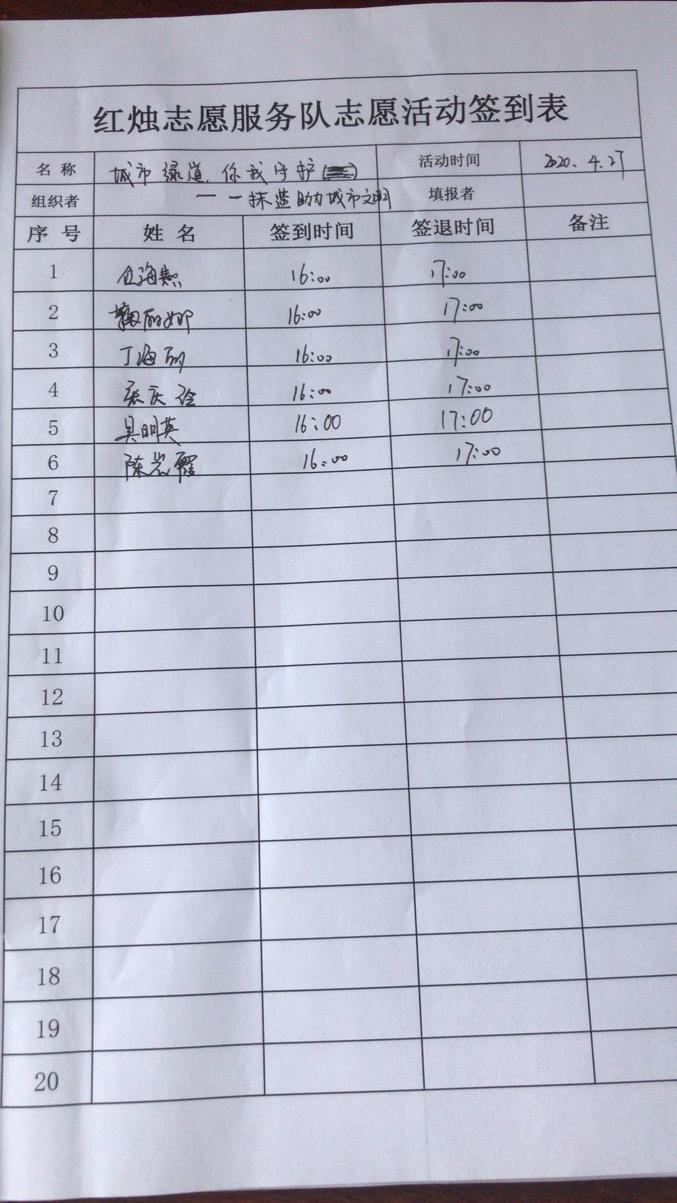 红烛志愿服务队志愿活动签到表
名称 城市绿道,你我守护 活动时间 2020.4.27
组织者 — 一抹蓝助力城市文明 填报者
序号 姓名 签到时间 签退时间 备注
1 海熙 16:00 17:00
2 丽娜 16:00 17:00
3 丁海丽 16:00 17:00
4 张庆玲 16:00 17:00
5 吴明英 16:00 17:00
6 陈岩霞 16:00 17:00
7
8
9
10
11
12
13
14
15
16
17
18
19
20